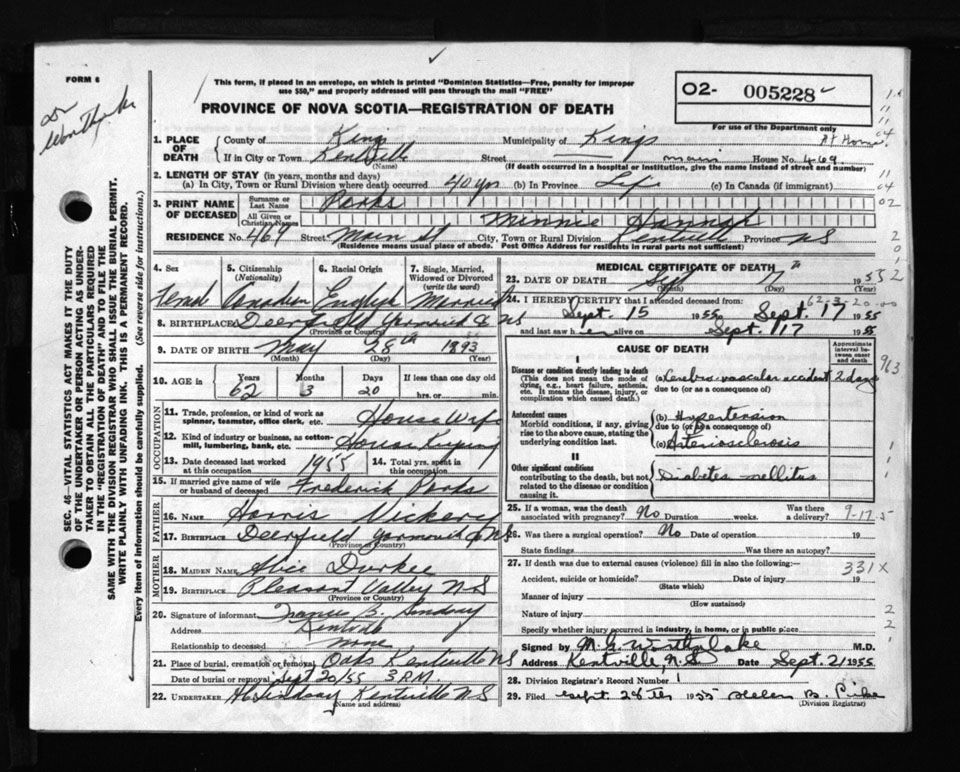 FORM 6
Dr
This form, if placed in an envelope, on which is printed "Dominion Statistics—Free, penalty for improper
use $50," and properly addressed will pass through the mail "FREE"
PROVINCE OF NOVA SCOTIA—REGISTRATION OF DEATH
O2- 005228
For use of the Department only
SEC. 46—VITAL STATISTICS ACT MAKES IT THE DUTY
OF THE UNDERTAKER OR PERSON ACTING AS UNDER-
TAKER TO OBTAIN ALL THE PARTICULARS REQUIRED
IN THE "REGISTRATION OF DEATH" AND TO FILE THE
SAME WITH THE DIVISION REGISTRAR WHO SHALL ISSUE THE BURIAL PERMIT.
WRITE PLAINLY WITH UNFADING INK. THIS IS A PERMANENT RECORD.
Every item of information should be carefully supplied. (See reverse side for instructions.)
1. PLACE OF DEATH County of Kings Municipality of Kings At Home
If in City or Town Kentville (Name) Street Main House No. 469
(If death occurred in a hospital or institution, give the name instead of street and number)
2. LENGTH OF STAY (in years, months and days)
(a) In City, Town or Rural Division where death occurred 40 yrs (b) In Province Life (c) In Canada (if immigrant)
3. PRINT NAME OF DECEASED Surname or Last Name Parks
All Given or Christian Names Minnie Hannah
RESIDENCE No. 469 Street Main St City, Town or Rural Division Kentville Province NS
(Residence means usual place of abode. Post Office Address for residents in rural parts not sufficient)
4. Sex Female
5. Citizenship (Nationality) Canadian
6. Racial Origin English
7. Single, Married, Widowed or Divorced (write the word) Married
8. BIRTHPLACE Deerfield Yarmouth Co NS
(Province or Country)
9. DATE OF BIRTH May 28th 1893
(Month) (Day) (Year)
10. AGE in Years 62 Months 3 Days 20 If less than one day old hrs. or min.
OCCUPATION
11. Trade, profession, or kind of work as spinner, teamster, office clerk, etc. House Wife
12. Kind of industry or business, as cotton-mill, lumbering, bank, etc. House Keeping
13. Date deceased last worked at this occupation 1955 14. Total yrs. spent in this occupation
15. If married give name of wife or husband of deceased Frederick Parks
FATHER
16. NAME Harris Vickery
17. BIRTHPLACE Deerfield Yarmouth Co NS
(Province or Country)
MOTHER
18. MAIDEN NAME Alice Durkee
19. BIRTHPLACE Pleasant Valley NS
(Province or Country)
20. Signature of informant Francis B. Lindsay
Address Kentville
Relationship to deceased None
21. Place of burial, cremation or removal Oaks Kentville NS
Date of burial or removal Sept 20/55 3 P.M.
22. UNDERTAKER Kentville NS
(Name and address)
MEDICAL CERTIFICATE OF DEATH
23. DATE OF DEATH 17th 1955
(Month) (Day)
62-3-20-00
24. I HEREBY CERTIFY that I attended deceased from:
Sept. 15 1955 to Sept. 17 1955
and last saw her alive on Sept. 17 1955
CAUSE OF DEATH
Approximate interval between onset and death
I
Disease or condition directly leading to death
(This does not mean the mode of dying, e.g., heart failure, asthenia, etc. It means the disease, injury, or complication which caused death.)
(a) Cerebro vascular accident 2 days
due to (or as a consequence of)
Antecedent causes
Morbid conditions, if any, giving rise to the above cause, stating the underlying condition last.
(b) Hypertension
due to (or as a consequence of)
(c) Arteriosclerosis
II
Other significant conditions
contributing to the death, but not related to the disease or condition causing it.
Diabetes mellitus
25. If a woman, was the death associated with pregnancy? No Duration weeks. Was there a delivery? 9-17-5
26. Was there a surgical operation? No Date of operation 19
State findings Was there an autopsy?
27. If death was due to external causes (violence) fill in also the following:— 331X
Accident, suicide or homicide? Date of injury 19
(State which)
Manner of injury
(How sustained)
Nature of injury
Specify whether injury occurred in industry, in home, or in public place
Signed by M.D.
Address Kentville, N.S. Date Sept. 21 1955
28. Division Registrar's Record Number 1
29. Filed Sept. 28th 1955 Helen B.
(Division Registrar)